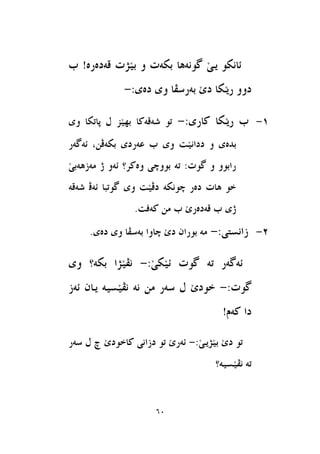 ئانكو یێ گونەها بكەت و بێژت قەدەرە! ب
دوو رێكا دێ بەرسڤا وی دەی:-
١- ب رێكا كاری:- تو شەقەكا بهێز ل پاتكا وی
بدەی و ددانێت وی ب عەردی بكەڤن، ئەگەر
رابوو و گوت: تە بووچی وەكر؟ ئەو ژ مەزهەبێ
خو هات دەر چونكە دڤێت وی گوتبا ئەڤ شەقە
ژی ب قەدەرێ ب من كەفت.
٢- زانستی:- مە بوران دێ چاوا بەسڤا وی دەی.
ئەگەر تە گوت ئێكێ:- نڤێژا بكە؟ وی
گوت:- خودێ ل سەر من نە نڤێسیە یان ئەز
دا كەم!
تو دێ بێژیێ:- ئەرێ تو دزانی كاخودێ چ ل سەر
تە نڤێسیە؟
٦٠